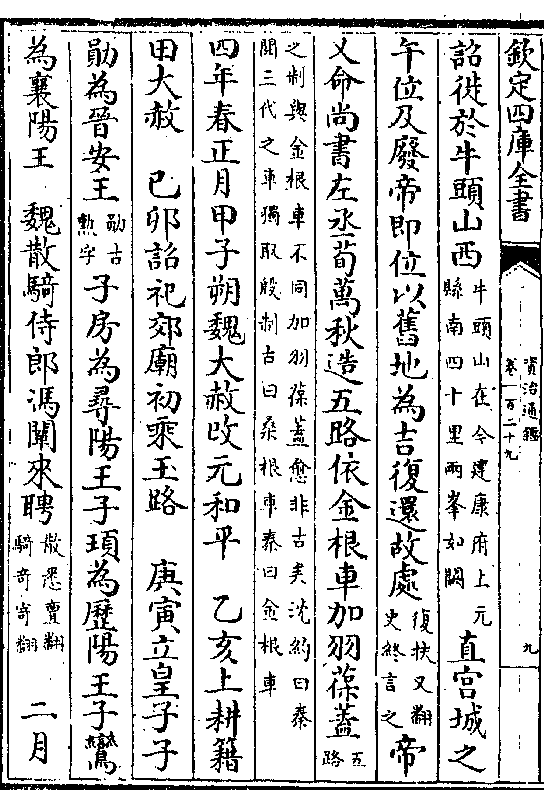 欽定四庫全書
資治通鑑
卷一百二十九
九
詔徙於牛頭山西牛頭山在今建康府上元縣南四十里兩峯如闕直宫城之
午位及廢帝即位以舊地為吉復還故處復扶又翻史終言之帝
又命尚書左丞荀萬秋造五路依金根車加羽葆蓋五路
之制與金根車不同加羽葆蓋愈非古矣沈約曰秦閲三代之車獨取殷制古曰桑根車秦曰金根車
四年春正月甲子朔魏大赦改元和平 乙亥上耕籍
田大赦 己卯詔祀郊廟初乘玉路 庚寅立皇子子
勛為晉安王勛古勲字子房為尋陽王子頊為歷陽王子鸞
為襄陽王 魏散騎侍郎馮闡來聘散悉亶翻騎奇寄翻 二月